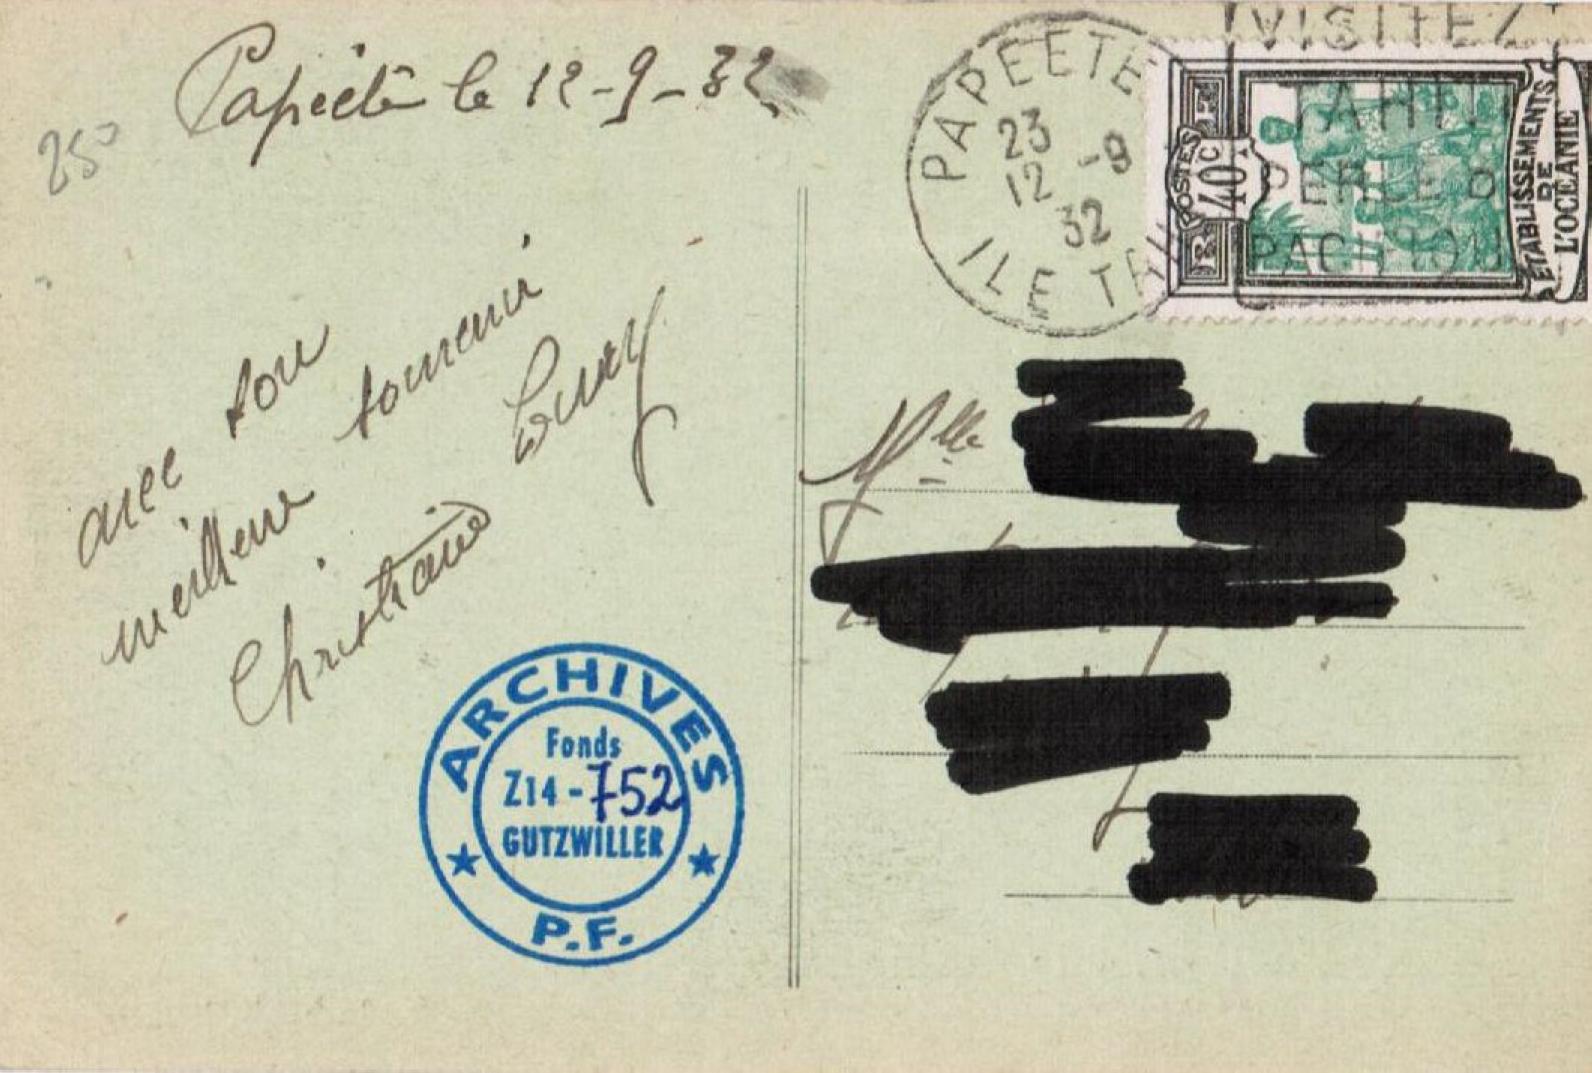 250
Papeete le 12-9-32
avec son
meilleur souvenir
Christiane
PAPEETE
23
12 -9
32
ILE TAH
VISITEZ
TAHITI
PERLE D
PACIFIQUE
POSTES
40 c
R F
ÉTABLISSEMENTS
DE
L'OCÉANIE
Mlle
ARCHIVES
Fonds
Z14-752
GUTZWILLER
P.F.